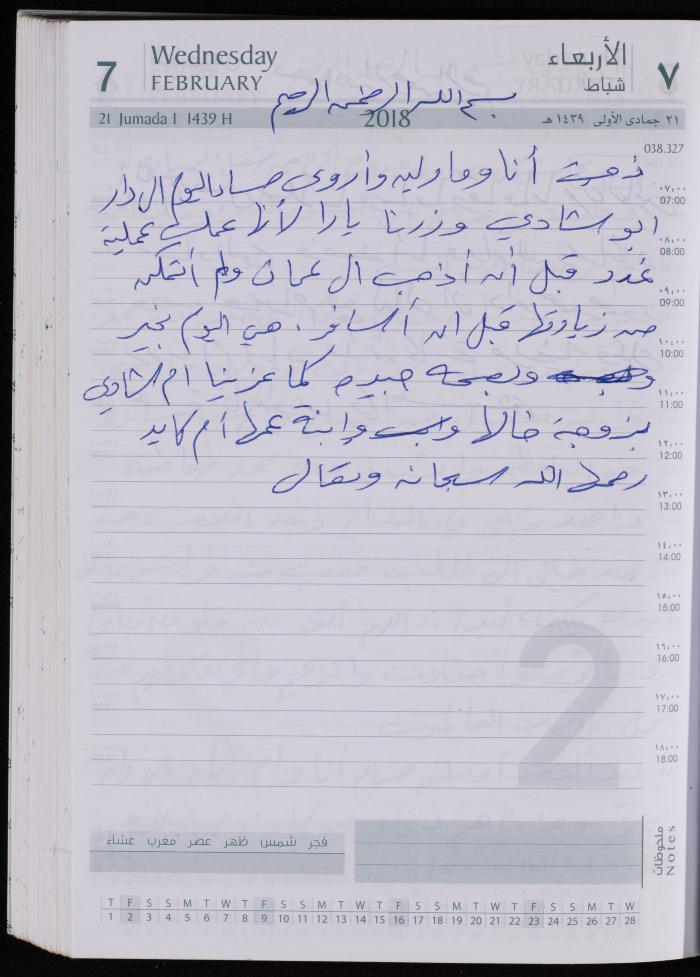 7 Wednesday FEBRUARY الأربعاء شباط ٧
بسم الله الرحمن الرحيم
21 Jumada I 1439 H 2018 ٢١ جمادى الأولى ١٤٣٩ هـ
038.327
ذهبت أنا وماوليه وأروى مساء اليوم الى دار
ابو شادي وزرنا يارا لأنها عملت عملية
غدد قبل أن أذهب الى عمان ولم أتمكن
من زيارتها قبل ان أسافر. هي اليوم بخير
وبصحة جيده كما عزينا ام شادي
بزوجة خالها وابنة عمها أم كايد
رحمها الله سبحانه وتعالى
٠٧:٠٠ 07:00
٠٨:٠٠ 08:00
٠٩:٠٠ 09:00
١٠:٠٠ 10:00
١١:٠٠ 11:00
١٢:٠٠ 12:00
١٣:٠٠ 13:00
١٤:٠٠ 14:00
١٥:٠٠ 15:00
١٦:٠٠ 16:00
١٧:٠٠ 17:00
١٨:٠٠ 18:00
2
فجر شمس ظهر عصر مغرب عشاء
ملحوظات Notes
T F S S M T W T F S S M T W T F S S M T W T F S S M T W
1 2 3 4 5 6 7 8 9 10 11 12 13 14 15 16 17 18 19 20 21 22 23 24 25 26 27 28